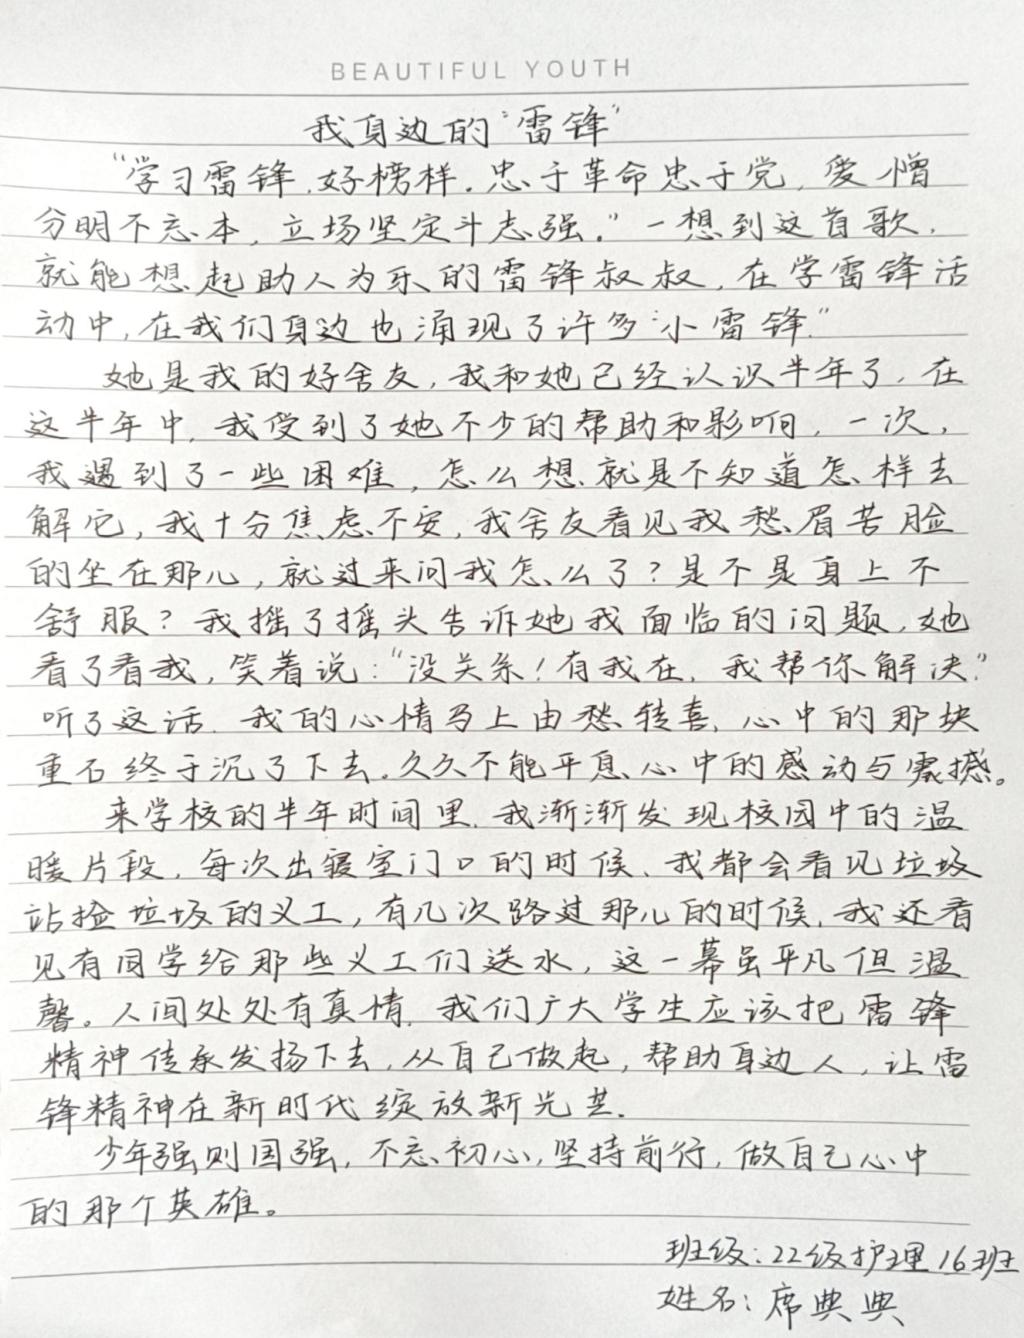 BEAUTIFUL YOUTH
我身边的“雷锋”
“学习雷锋,好榜样.忠于革命忠于党,爱憎
分明不忘本,立场坚定斗志强.”一想到这首歌,
就能想起助人为乐的雷锋叔叔,在学雷锋活
动中,在我们身边也涌现了许多“小雷锋.”
她是我的好舍友,我和她已经认识半年了,在
这半年中,我受到了她不少的帮助和影响,一次,
我遇到了一些困难,怎么想就是不知道怎样去
解它,我十分焦虑不安,我舍友看见我愁眉苦脸
的坐在那儿,就过来问我怎么了?是不是身上不
舒服?我摇了摇头告诉她我面临的问题,她
看了看我,笑着说:“没关系!有我在,我帮你解决.”
听了这话,我的心情马上由愁转喜,心中的那块
重石终于沉了下去.久久不能平息心中的感动与震撼。
来学校的半年时间里,我渐渐发现校园中的温
暖片段,每次出寝室门口的时候,我都会看见垃圾
站捡垃圾的义工,有几次路过那儿的时候,我还看
见有同学给那些义工们送水,这一幕虽平凡但温
馨。人间处处有真情,我们广大学生应该把雷锋
精神传承发扬下去,从自己做起,帮助身边人,让雷
锋精神在新时代绽放新光芒.
少年强则国强,不忘初心,坚持前行,做自己心中
的那个英雄。
班级:22级护理16班
姓名:席典典